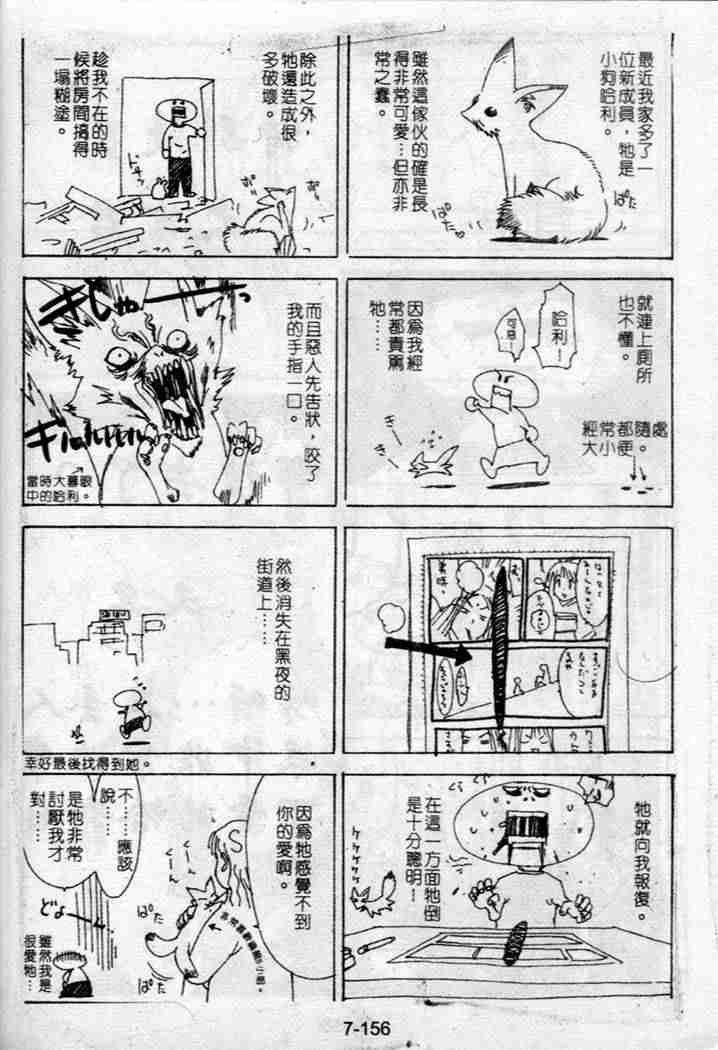 最近我家多了一
位新成員，牠是
小狗哈利。
雖然這傢伙的確是長
得非常可愛…但亦非
常之蠢。
ぱた
ぱた
就連上廁所
也不懂。
隨處
都便。
常小
經大
哈利！
可惡！
因為我經
常都責罵
牠……
牠就向我報復。
在這一方面牠倒
是十分聰明…
ケケケケケ
除此之外，
牠還造成很
多破壞。
趁我不在的時
候將房間搞得
一塌糊塗。
而且惡人先告狀，咬了
我的手指一口。
ぎしゃー
ギギルルルル
當時大暮眼
中的哈利。
然後消失在黑夜的
街道上……
幸好最後找得到她。
因為牠感覺不到
你的愛啊。
くーん
くーん
ぱた
ぱた
不……應該
說……
是牠非常
討厭我才
對……
どよーん
雖然我是
很愛牠…
7-156